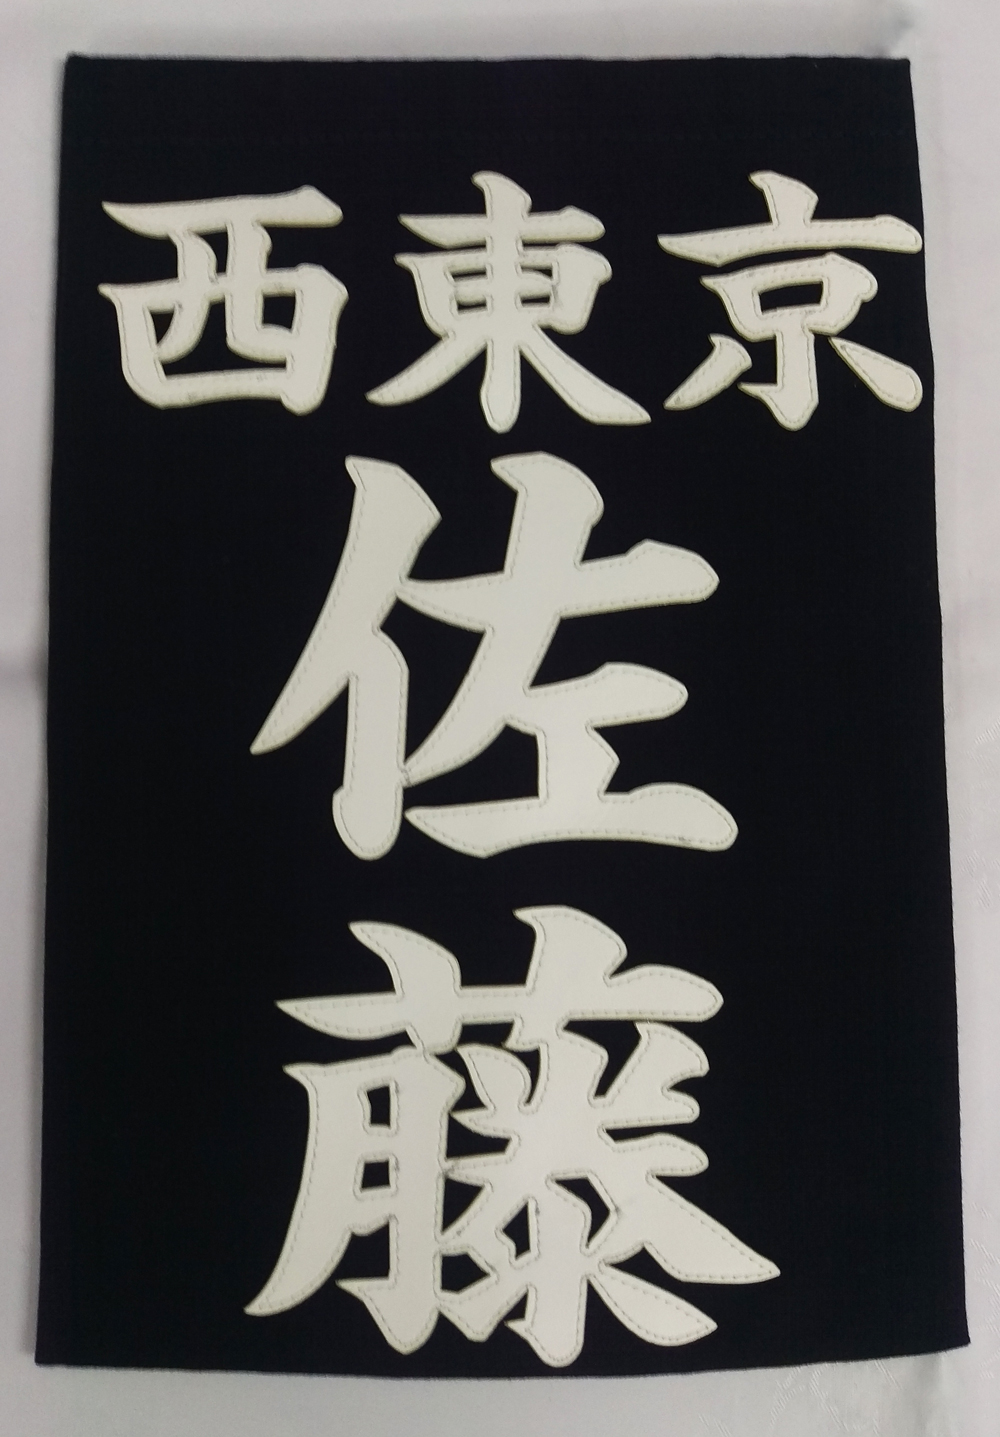 西東京
佐藤